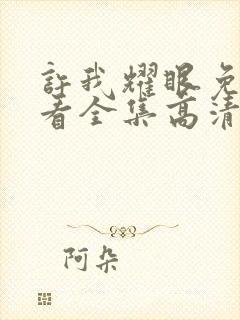 許我耀眼免
看全集高清
阿朵